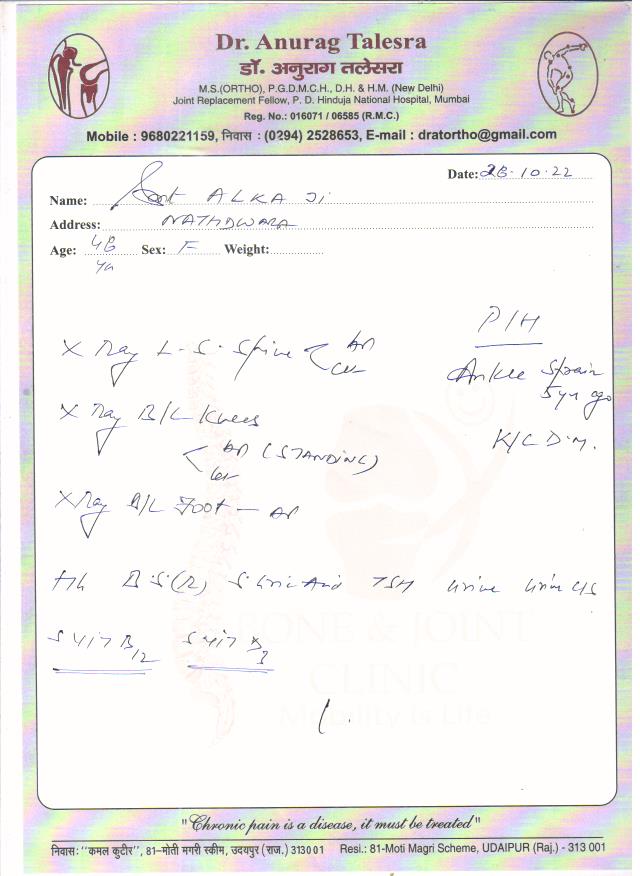 Dr. Anurag Talesra
डॉ. अनुराग तलेसरा
M.S.(ORTHO), P.G.D.M.C.H., D.H. & H.M. (New Delhi)
Joint Replacement Fellow, P. D. Hinduja National Hospital, Mumbai
Reg. No.: 016071 / 06585 (R.M.C.)
Mobile : 9680221159, निवास : (0294) 2528653, E-mail : dratortho@gmail.com
Date: 28.10.22
Name: ALKA Ji
Address: NATHDWARA
Age: 48 Sex: F Weight:
P/H
X Ray L-S. Spine AP
Ankle Sprain
5yr ago
X Ray B/L Knees
AP (STANDING)
K/C D.M.
X Ray B/L Foot - AP
B.S.(R) S Uric Acid TSH Urine
S Vit B12 S Vit D3
BONE & JOINT
CLINIC
Mobility is Life
"Chronic pain is a disease, it must be treated"
निवास: "कमल कुटीर", 81-मोती मगरी स्कीम, उदयपुर (राज.) 313001 Resi.: 81-Moti Magri Scheme, UDAIPUR (Raj.) - 313 001